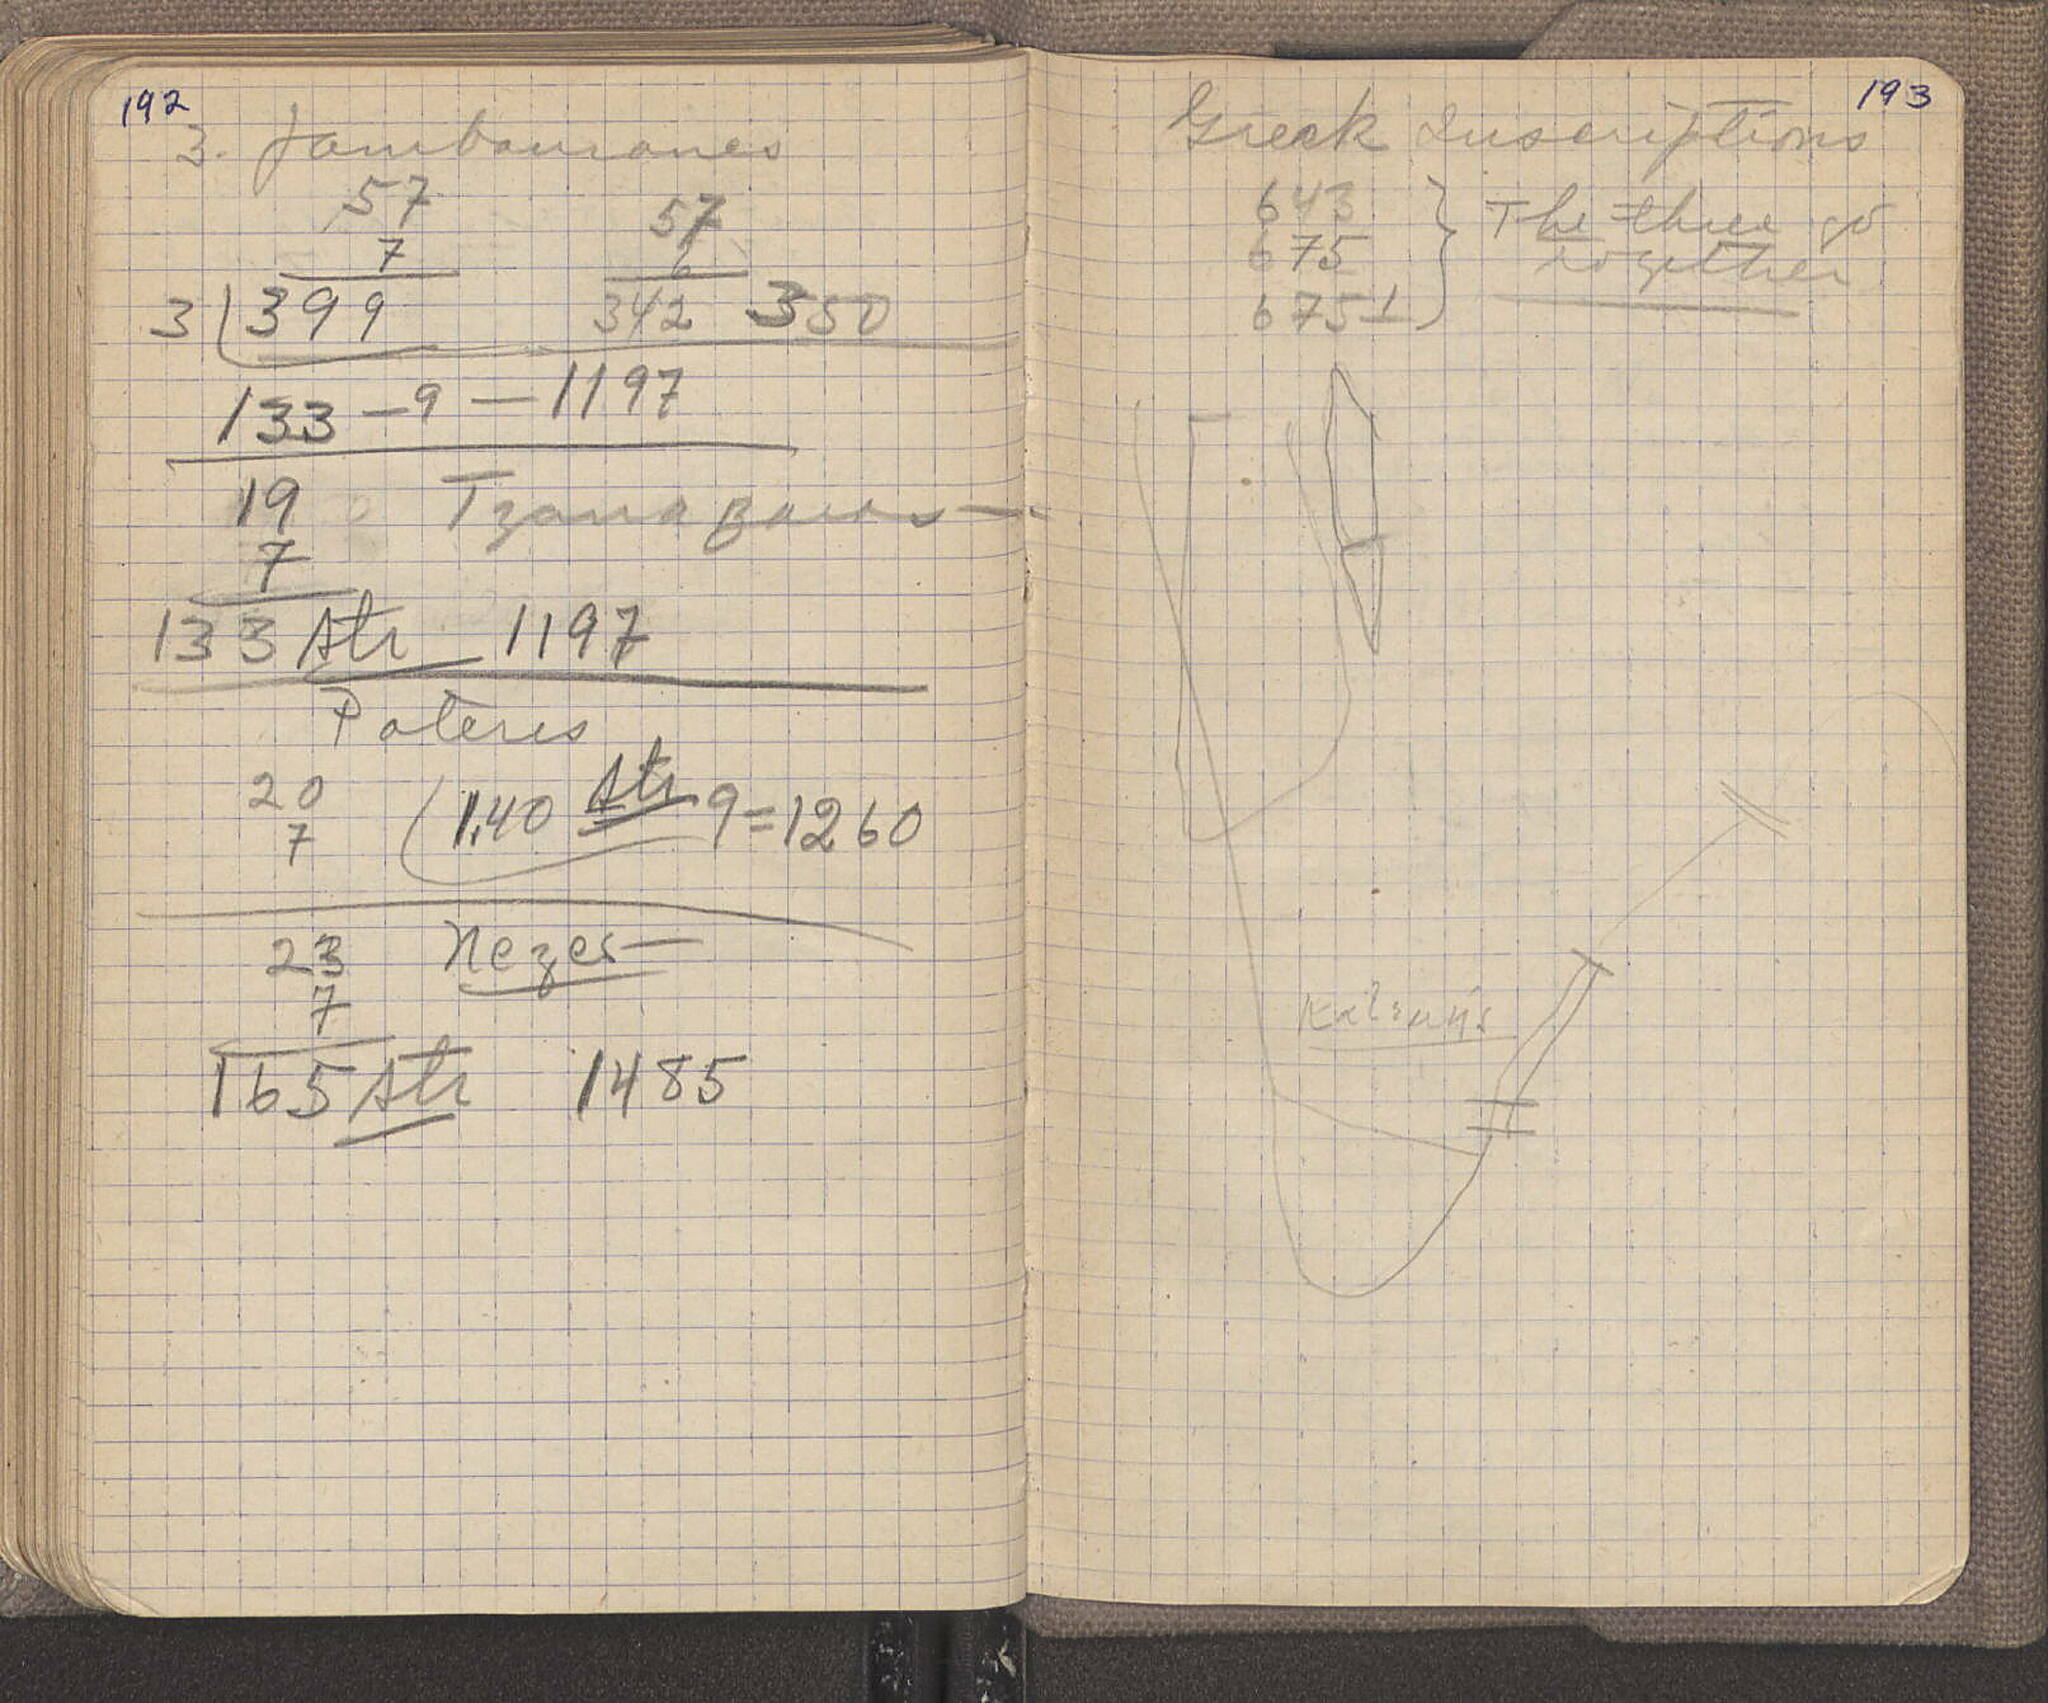 192
3.
57 57
7 6
3 399 342 350
133 – 9 – 1197
19
7
133 Str 1197
Pateris
20
7 1,40 Str 9 = 1260
23 Nezer
7
165 Str 1485
193
Greek Inscriptions
643 The three go
675 together
6751